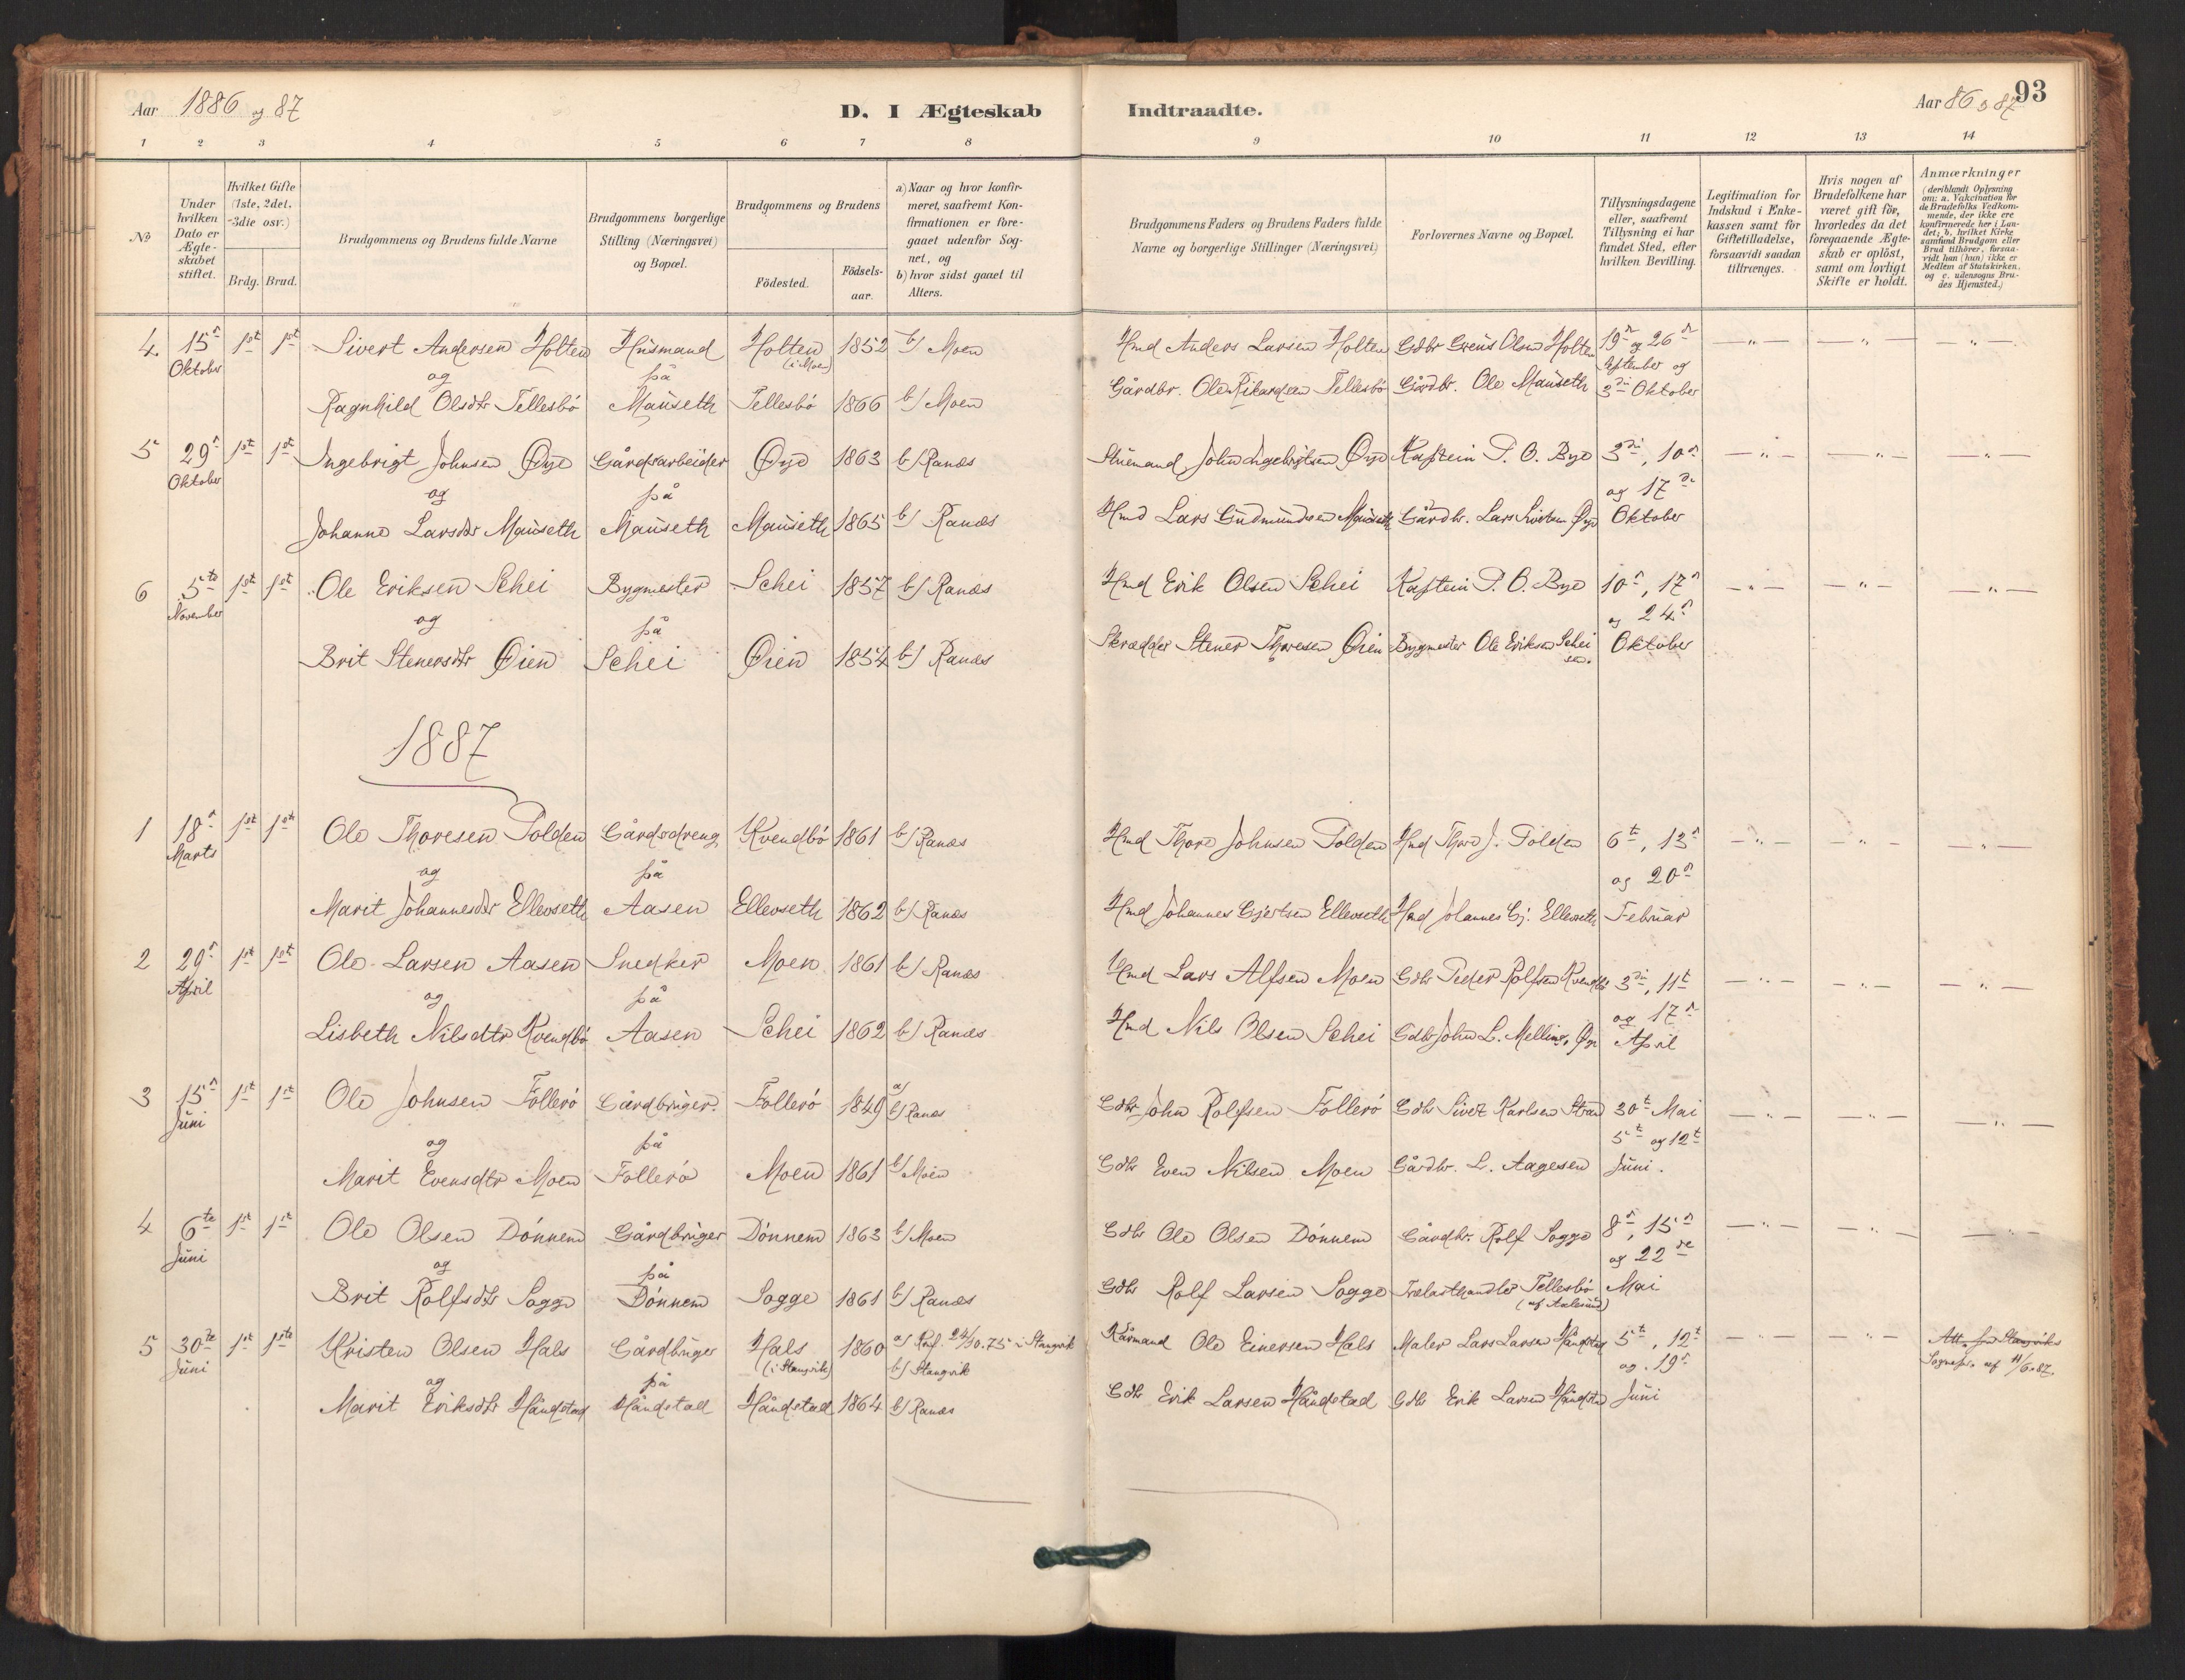 Aar 1886 og 87
D. I Ægteskab Indtraadte.
Aar 86 og 87
93
1 2 3 4 5 6 7 8 9 10 11 12 13 14
No
Under hvilken Dato er Ægteskabet stiftet.
Hvilket Gifte (1ste, 2det, 3die osv.)
Brdg. Brud.
Brudgommens og Brudens fulde Navne
Brudgommens borgerlige Stilling (Næringsvei) og Bopæl.
Brudgommens og Brudens
Födested.
Födsels-aar.
a) Naar og hvor konfirmeret, saafremt Konfirmationen er foregaaet udenfor Sognet, og
b) hvor sidst gaaet til Alters.
Brudgommens Faders og Brudens Faders fulde Navne og borgerlige Stillinger (Næringsvei)
Forlovernes Navne og Bopæl.
Tillysningsdagene eller, saafremt Tillysning ei har fundet Sted, efter hvilken Bevilling.
Legitimation for Indskud i Enkekassen samt for Giftetilladelse, forsaavidt saadan tiltrænges.
Hvis nogen af Brudefolkene har været gift för, hvorledes da det foregaaende Ægteskab er oplöst, samt om lovligt Skifte er holdt.
Anmærkninger (deriblandt Oplysning om: a. Vakcination for de Brudefolks Vedkommende, der ikke ere konfirmerede her i Landet; b. hvilket Kirkesamfund Brudgom eller Brud tilhörer, forsaavidt han (hun) ikke er Medlem af Statskirken, og c. udensogns Brudes Hjemsted.)
4. 15d Oktober 1st 1st Sivert Andersen Holten Husmand Holten (i Moen) 1852 b/ Moen Hmd Anders Larsen Holten Gdbr Olsen Holten 19d og 26d September og
og på
Ragnhild Olsdtr Tellesbö Mauseth Tellesbö 1866 b/ Moen Gårdbr. Ole Rikardsen Tellesbö Gårdbr. Ole Mauseth 3die Oktober
5 29d Oktober 1st 1st Ingebrigt Johnsen Øye Gårdsarbeider Øye 1863 b/ Ranæs John Ingebrigtsen Øye Kaptein P. O. Bye 3die, 10d
og på og 17de
Johanne Larsdtr Mauseth Mauseth Mauseth 1865 b/ Ranæs Hmd Lars Gudmundsen Mauseth Gårdbr. Lars Øye Oktober
6 5te November 1st 1st Ole Eriksen Schei Bygmester Schei 1857 b/ Ranæs Hmd Erik Olsen Schei Kaptein P. O. Bye 10d, 17d
og på og 24d
Brit Stenersdtr Øien Schei Øien 1854 b/ Ranæs Skrædder Stener Thoresen Øien Bygmester Ole Eriksen Schei sen. Oktober
1887
1 18d Marts 1st 1st Ole Thoresen Polden Gårdsdreng Kvendbö 1861 b/ Ranæs Hmd Thore Johnsen Polden Hmd Thore J. Polden 6t, 13d
og på og 20d
Marit Johannesdtr Ellevseth Aasen Ellevseth 1862 b/ Ranæs Hmd Johannes Gjertsen Ellevseth Hmd Johannes Gj. Ellevseth Februar
2 29d April 1st 1st Ole Larsen Aasen Snedker Moen 1861 b/ Ranæs Hmd Lars Alfsen Moen Gdbr Peder Rolfsen Kvendbö 3die, 11t
og på og 17d
Lisbeth Nilsdtr Kvendbö Aasen Schei 1862 b/ Ranæs Hmd Nils Olsen Schei Gdbr John L. Øye April
3 15d Juni 1st 1st Ole Johnsen Follerö Gårdbruger Follerö 1849 a/ b/ Ranæs Gdbr John Rolfsen Follerö Gdbr Sivert Karlsen Strand 30t Mai
og på 5t og 12t
Marit Evensdtr Moen Follerö Moen 1861 b/ Moen Gdbr Even Nilsen Moen Gårdbr. L. Aagesen Juni.
4 6te Juni 1st 1st Ole Olsen Dönnem Gårdbruger Dönnem 1863 b/ Moen Gdbr Ole Olsen Dönnem Gårdbr. Rolf Sogge 8d, 15d
og på og 22de
Brit Rolfsdtr Sogge Dönnem Sogge 1861 b/ Ranæs Gdbr Rolf Larsen Sogge Trælasthandler Tellesbö (af Aalesund) Mai
5 30te Juni 1st 1ste Kristen Olsen Hals Gårdbruger Hals (i Stangvik) 1860 a/ Konf. 24/10.75 i Stangvik b/ Stangvik Kårmand Ole Einersen Hals Maler Lars Larsen Håndstad 5t, 12t Att. fra Stangviks Sognepr. af 11/6.87.
og på og 19d
Marit Eriksdtr Håndstad Håndstad Håndstad 1864 b/ Ranæs Gdbr Erik Larsen Håndstad Gdbr Erik Larsen Håndstad Juni